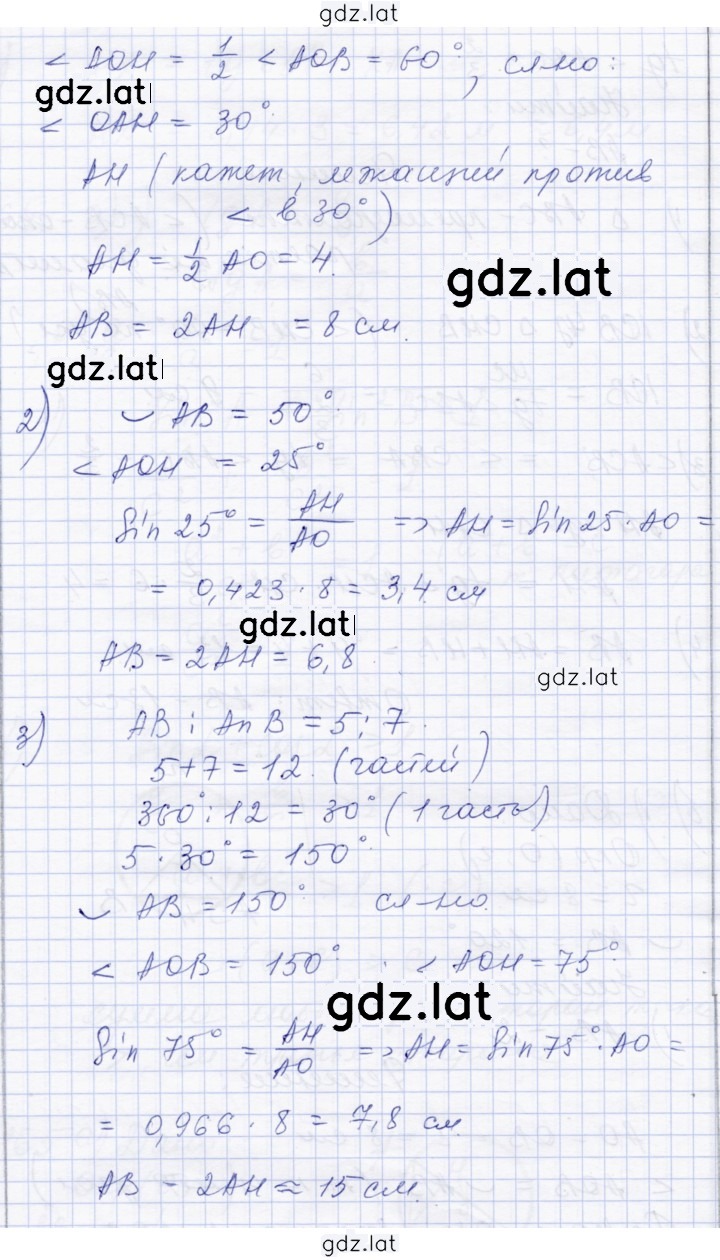 gdz.lat
< AOH = 1/2 < AOB = 60°, сл-но:
gdz.lat
< OAH = 30°
AH (катет, лежащий против
< в 30°)
AH = 1/2 AO = 4.
gdz.lat
AB = 2AH = 8 см.
gdz.lat
2) ◡ AB = 50°
< AOH = 25°
Sin 25° = AH/AO => AH = Sin 25 · AO =
= 0,423 · 8 = 3,4 см
gdz.lat
AB = 2AH = 6,8
gdz.lat
3) AB : AnB = 5 : 7.
5 + 7 = 12. (частей)
360° : 12 = 30° (1 часть)
5 · 30° = 150°
◡ AB = 150° сл-но.
< AOB = 150° . < AOH = 75°
gdz.lat
Sin 75° = AH/AO => AH = Sin 75° · AO =
= 0,966 · 8 = 7,8 см
AB - 2AH ≈ 15 см.
gdz.lat